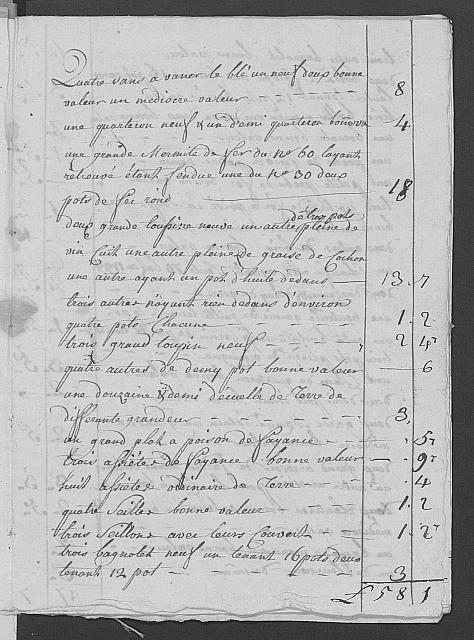 Quatre vans a vaner le blé un neuf deux bonne
valeur un mediocre valeur 8
une quarteron neuf & un demi quarteron bonne va 4
une grande Mermite de fer du No 60 layant
retrouvé étant fendue une du No 30 deux
pots de fer rond 18
deux grande toupine neuve un autre de trois pots pleine de
vin Cuit une autre pleine de graise de Cochon
une autre ayant un pot d'huile dedans 13. 7
trois autres n'ayant rien dedans d'environ
quatre pots Chacune 1. 2
trois grand toupin neuf 2 4
quatre autres de demy pot bonne valeur 6
une douzaine & demi d'écuelle de Terre de
differante grandeur 3.
un grand plat a poison de fayance 5
trois assiete de fayance bonne valeur 9
huit assiete ordinaire de Terre 4
quatre Seilles bonne valeur 1. 2
trois Seillons avec leurs Couvert 1. 2
trois bagnolet neuf un tenant 16 pots deux
tenant 12 pot 3
£ 58 1